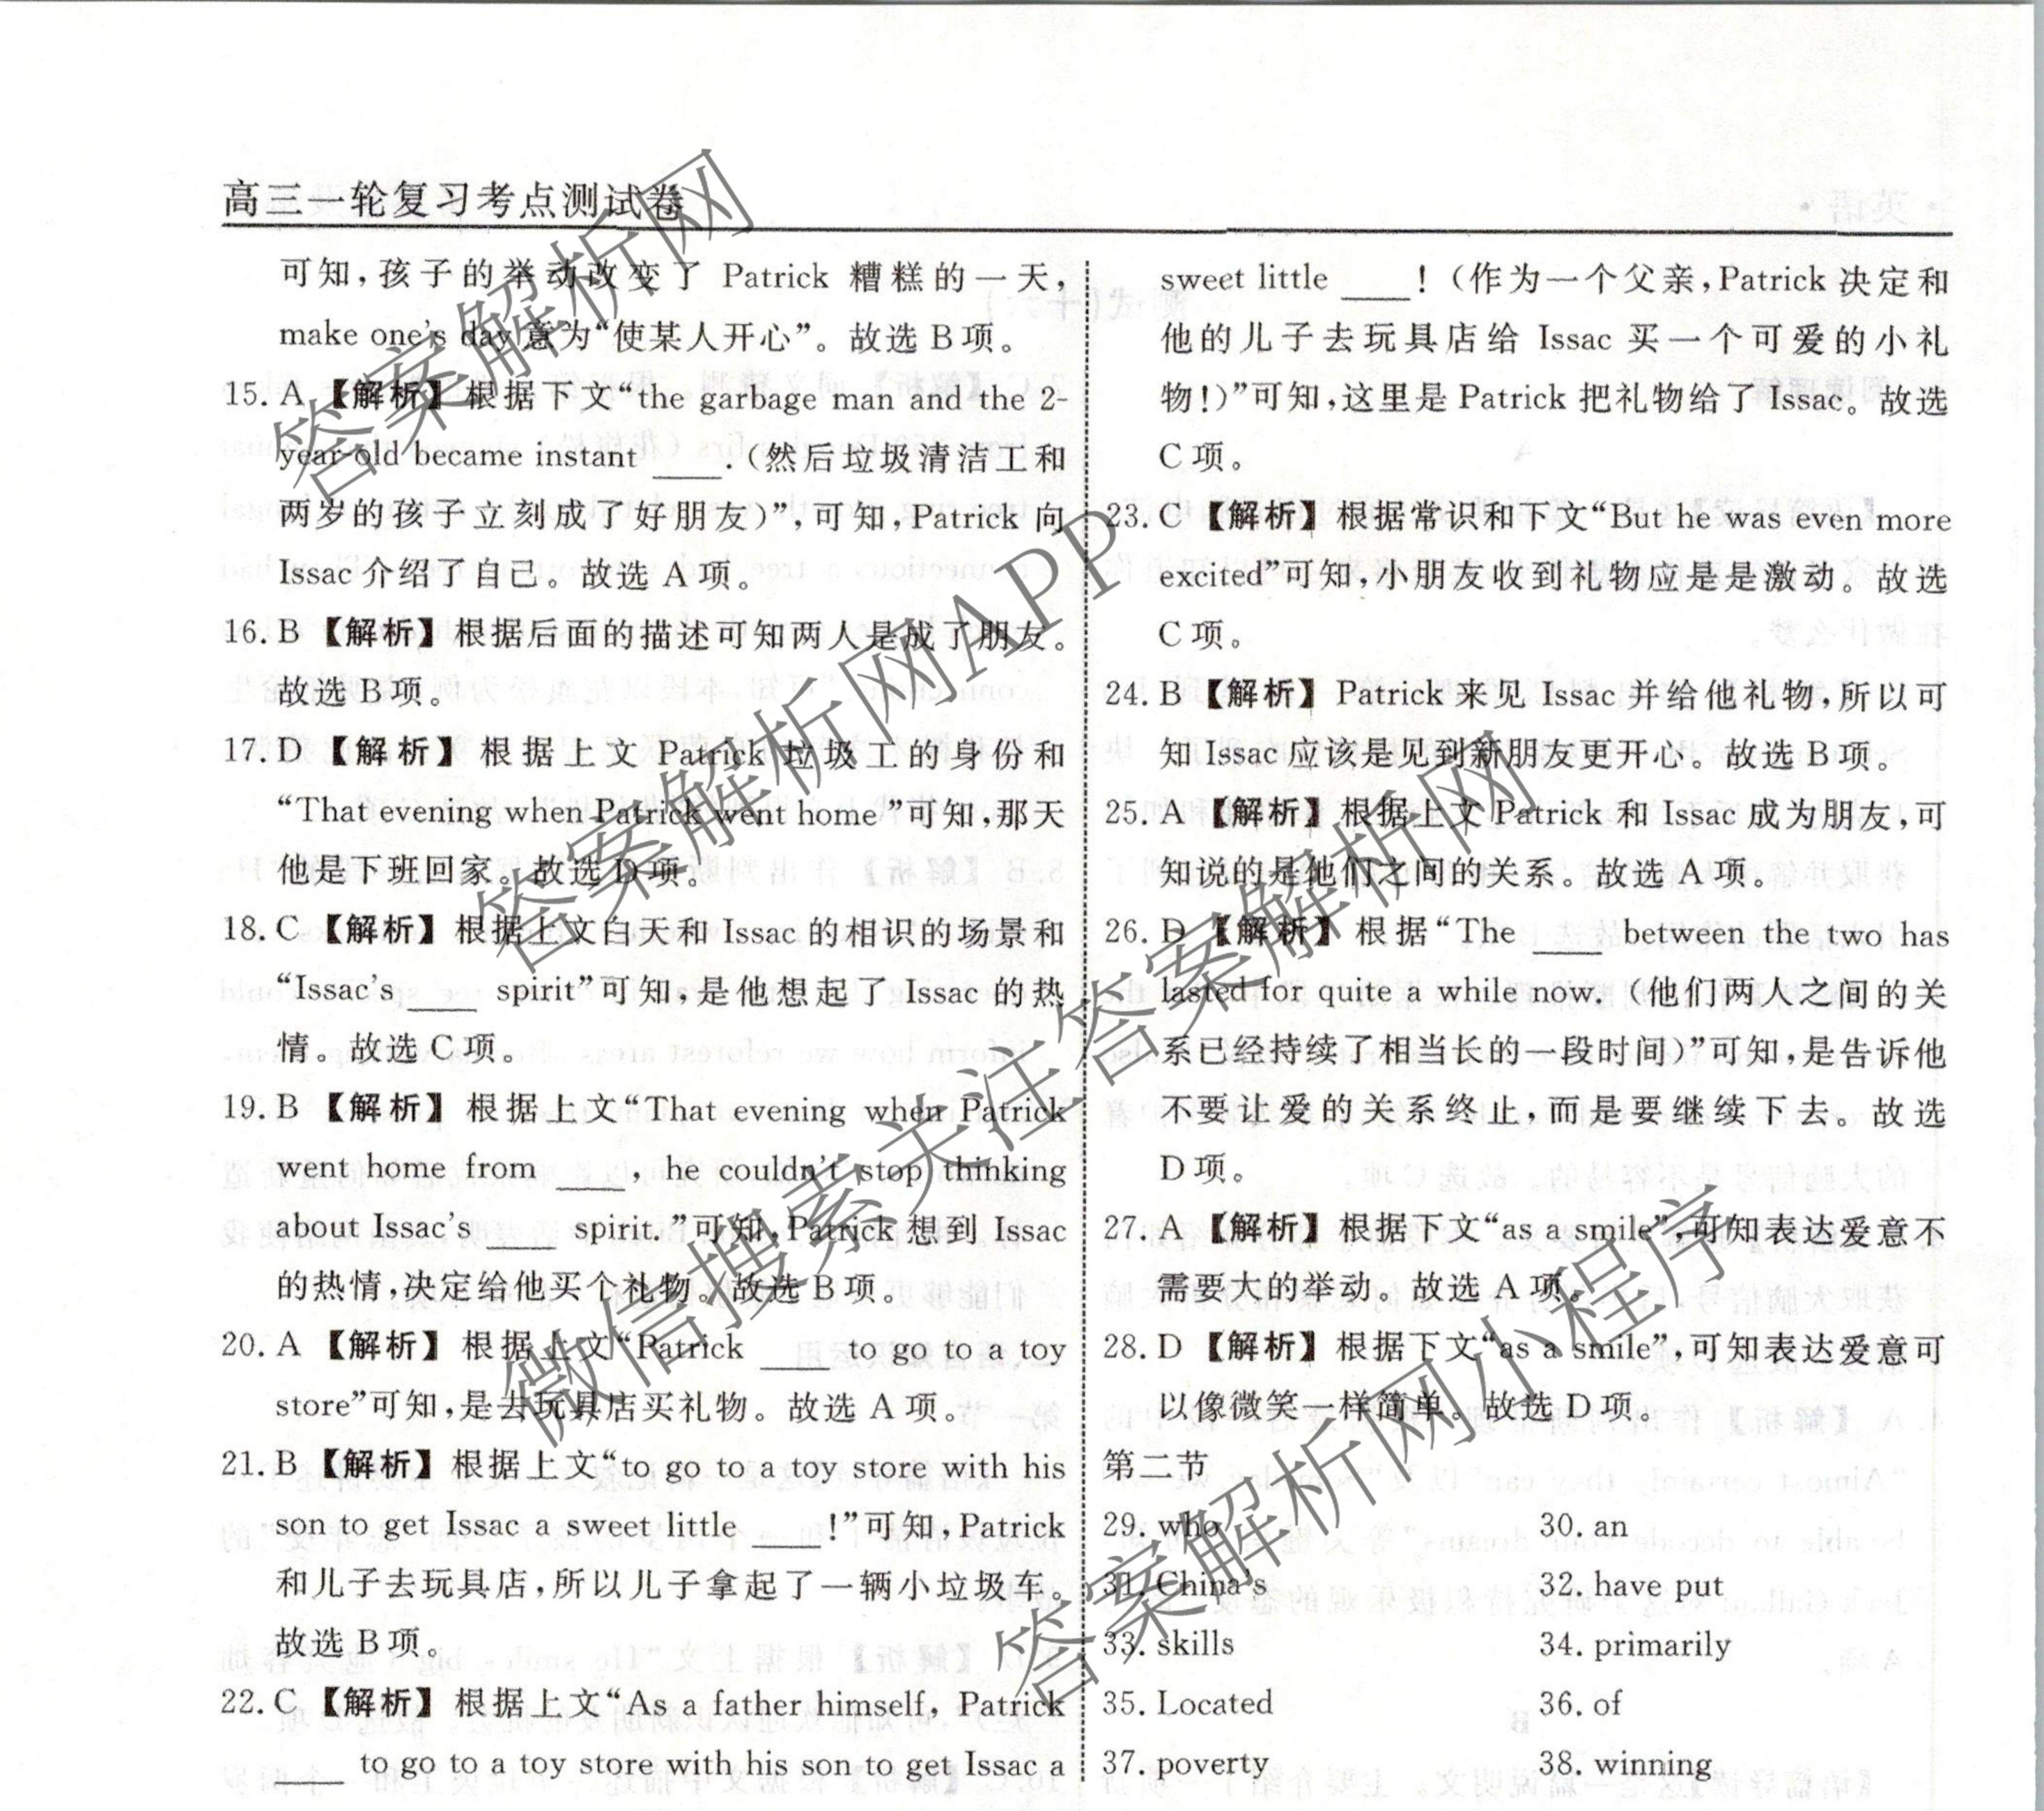 高三一轮复习考点测试卷
可知,孩子的举动改变了 Patrick 糟糕的一天,
make one's day 意为“使某人开心”。故选B项。
15. A 【解析】根据下文“the garbage man and the 2-
year-old became instant ____ .(然后垃圾清洁工和
两岁的孩子立刻成了好朋友)”,可知,Patrick 向
Issac 介绍了自己。故选 A 项。
16. B 【解析】根据后面的描述可知两人是成了朋友。
故选 B 项。
17. D 【解析】根据上文 Patrick 垃圾工的身份和
“That evening when Patrick went home”可知,那天
他是下班回家。故选 D 项。
18. C 【解析】根据上文白天和 Issac 的相识的场景和
“Issac's ____ spirit”可知,是他想起了 Issac 的热
情。故选 C 项。
19. B 【解析】根据上文“That evening when Patrick
went home from ____ , he couldn't stop thinking
about Issac's ____ spirit.”可知,Patrick 想到 Issac
的热情,决定给他买个礼物。故选 B 项。
20. A 【解析】根据上文“Patrick ____ to go to a toy
store”可知,是去玩具店买礼物。故选 A 项。
21. B 【解析】根据上文“to go to a toy store with his
son to get Issac a sweet little ____ !”可知,Patrick
和儿子去玩具店,所以儿子拿起了一辆小垃圾车。
故选 B 项。
22. C 【解析】根据上文“As a father himself, Patrick
____ to go to a toy store with his son to get Issac a
sweet little ____ ! (作为一个父亲,Patrick 决定和
他的儿子去玩具店给 Issac 买一个可爱的小礼
物!)”可知,这里是 Patrick 把礼物给了 Issac。故选
C 项。
23. C 【解析】根据常识和下文“But he was even more
excited”可知,小朋友收到礼物应是是激动。故选
C 项。
24. B 【解析】Patrick 来见 Issac 并给他礼物,所以可
知 Issac 应该是见到新朋友更开心。故选 B 项。
25. A 【解析】根据上文 Patrick 和 Issac 成为朋友,可
知说的是他们之间的关系。故选 A 项。
26. D 【解析】根据“The ____ between the two has
lasted for quite a while now. (他们两人之间的关
系已经持续了相当长的一段时间)”可知,是告诉他
不要让爱的关系终止,而是要继续下去。故选
D 项。
27. A 【解析】根据下文“as a smile”,可知表达爱意不
需要大的举动。故选 A 项。
28. D 【解析】根据下文“as a smile”,可知表达爱意可
以像微笑一样简单。故选 D 项。
第二节
29. who 30. an
31. China's 32. have put
33. skills 34. primarily
35. Located 36. of
37. poverty 38. winning
答案解析网
答案解析网APP
微信搜索关注答案解析网
答案解析网小程序